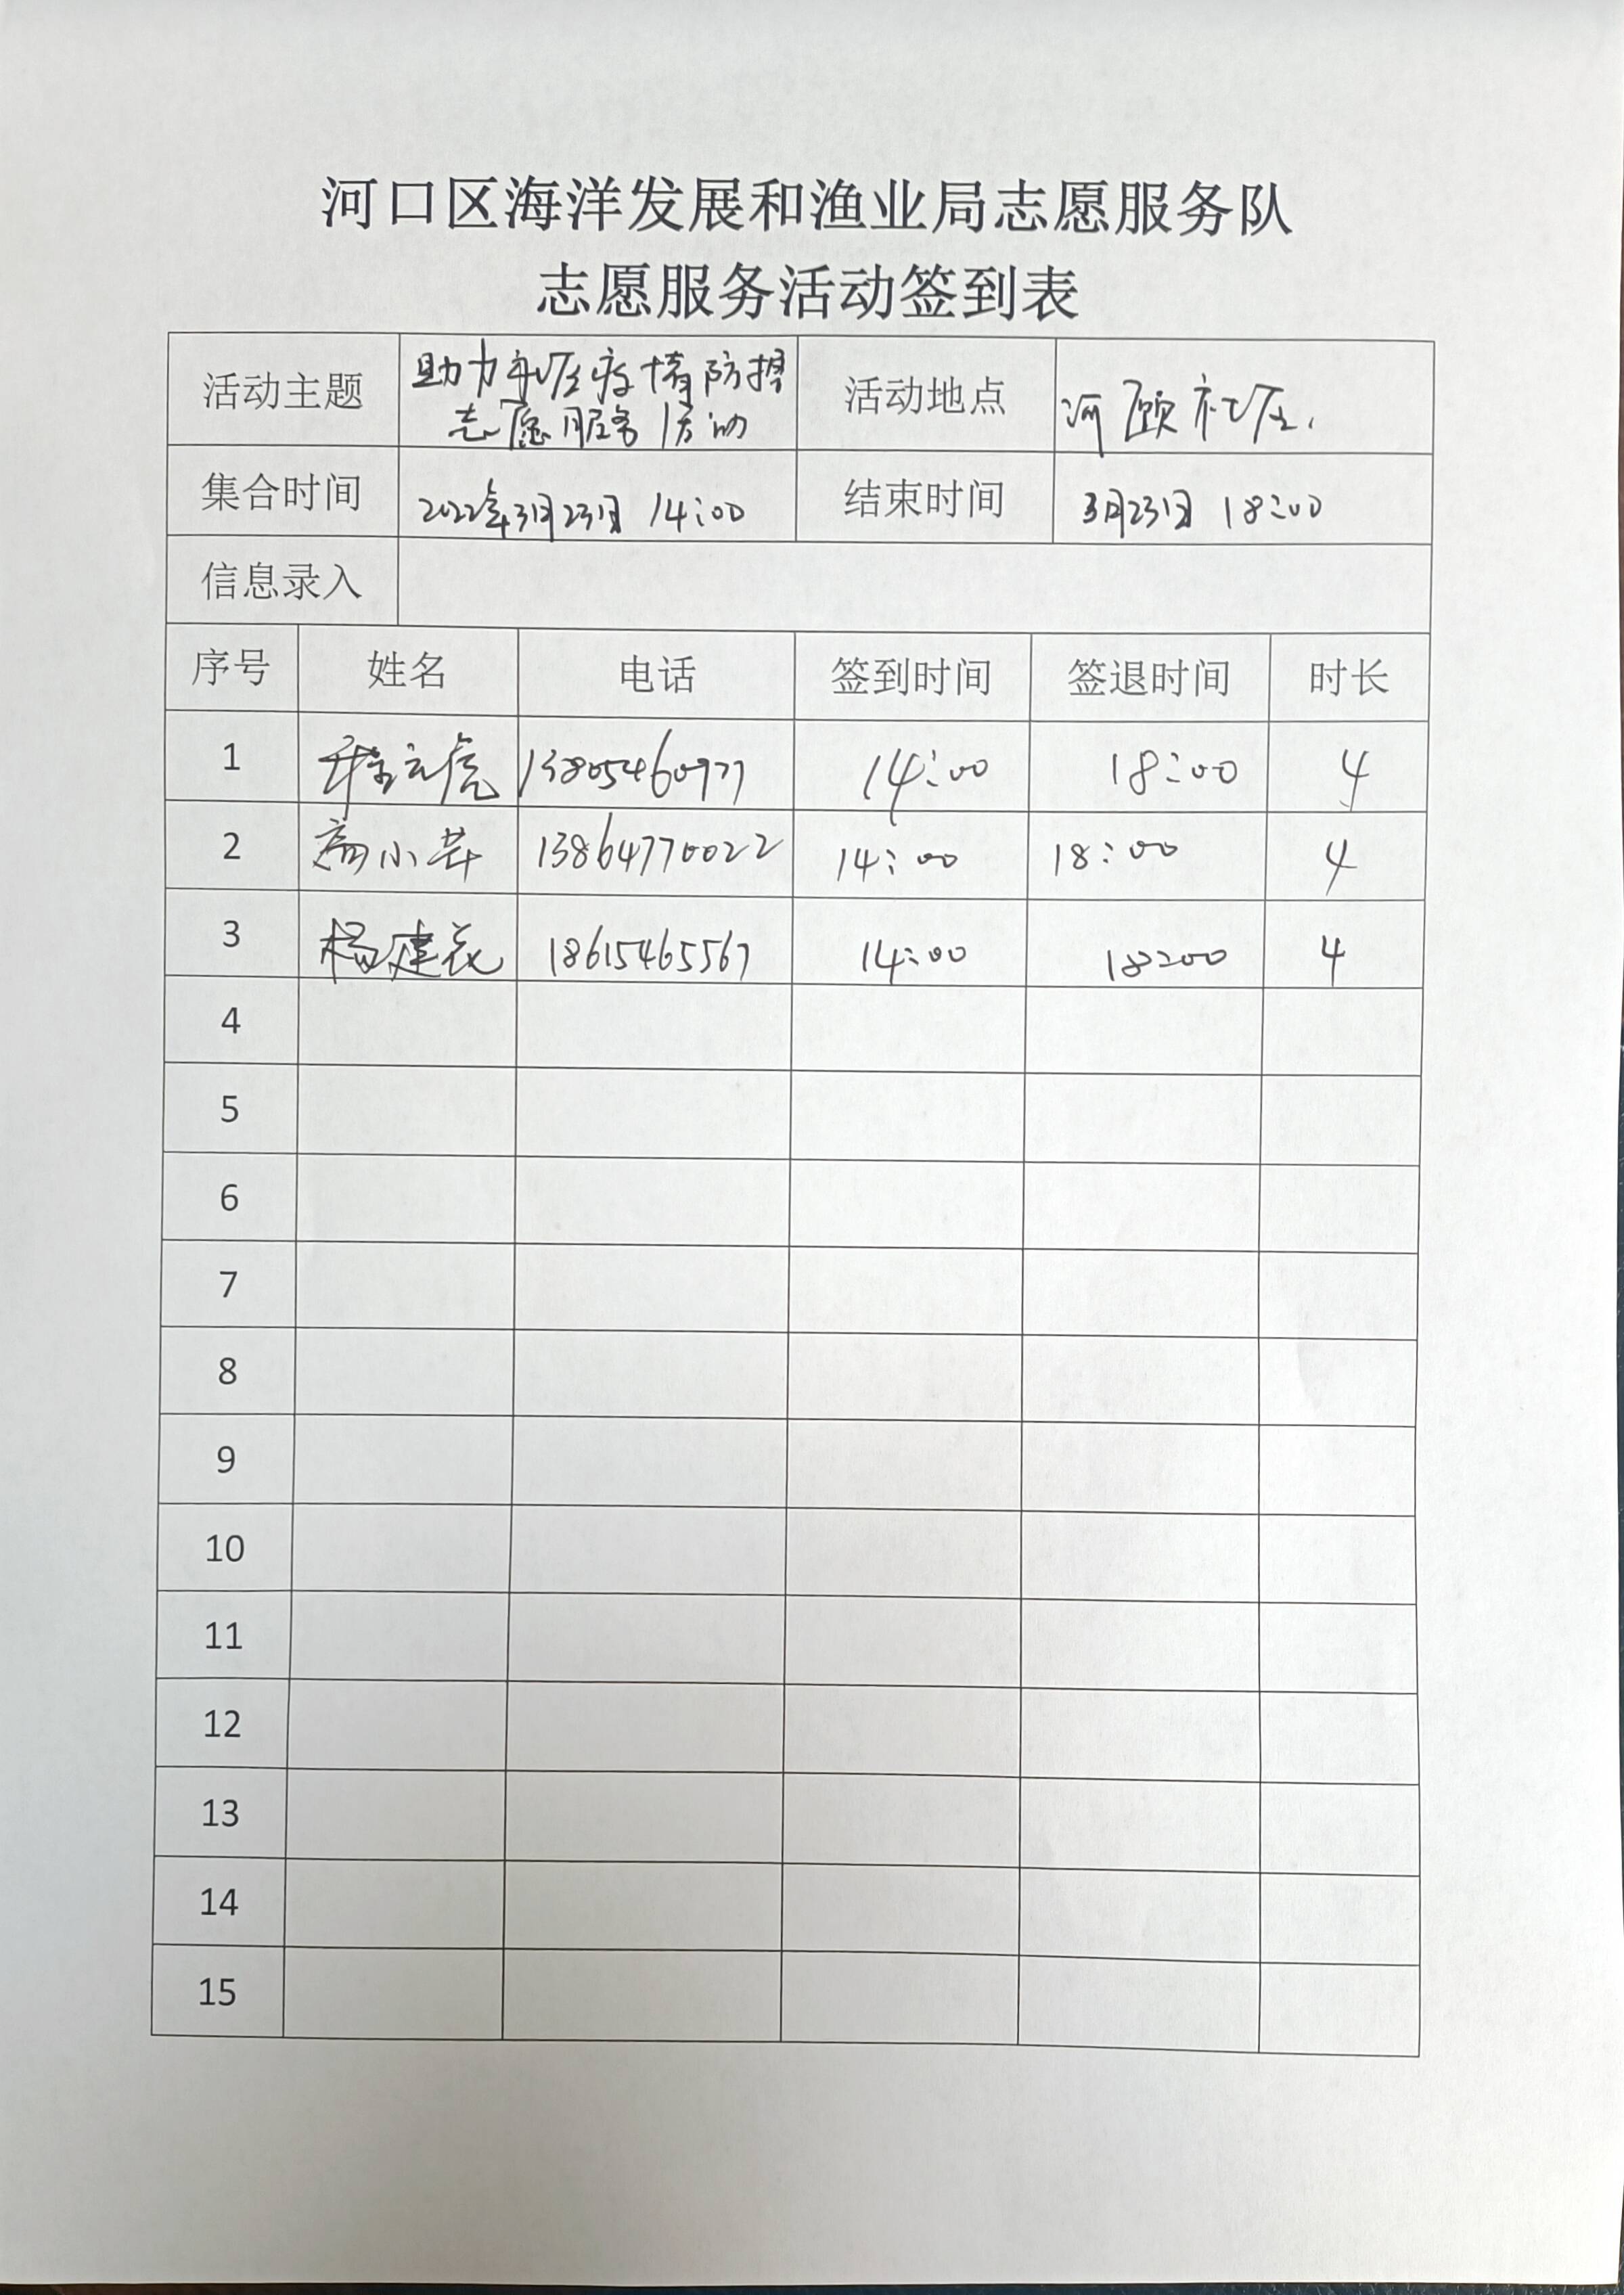 河口区海洋发展和渔业局志愿服务队
志愿服务活动签到表
活动主题 助力社区疫情防控 志愿服务活动 活动地点 河颐社区
集合时间 2022年3月23日 14:00 结束时间 3月23日 18:00
信息录入
序号 姓名 电话 签到时间 签退时间 时长
1 13805460977 14:00 18:00 4
2 13864770022 14:00 18:00 4
3 杨建花 18615465567 14:00 18:00 4
4
5
6
7
8
9
10
11
12
13
14
15